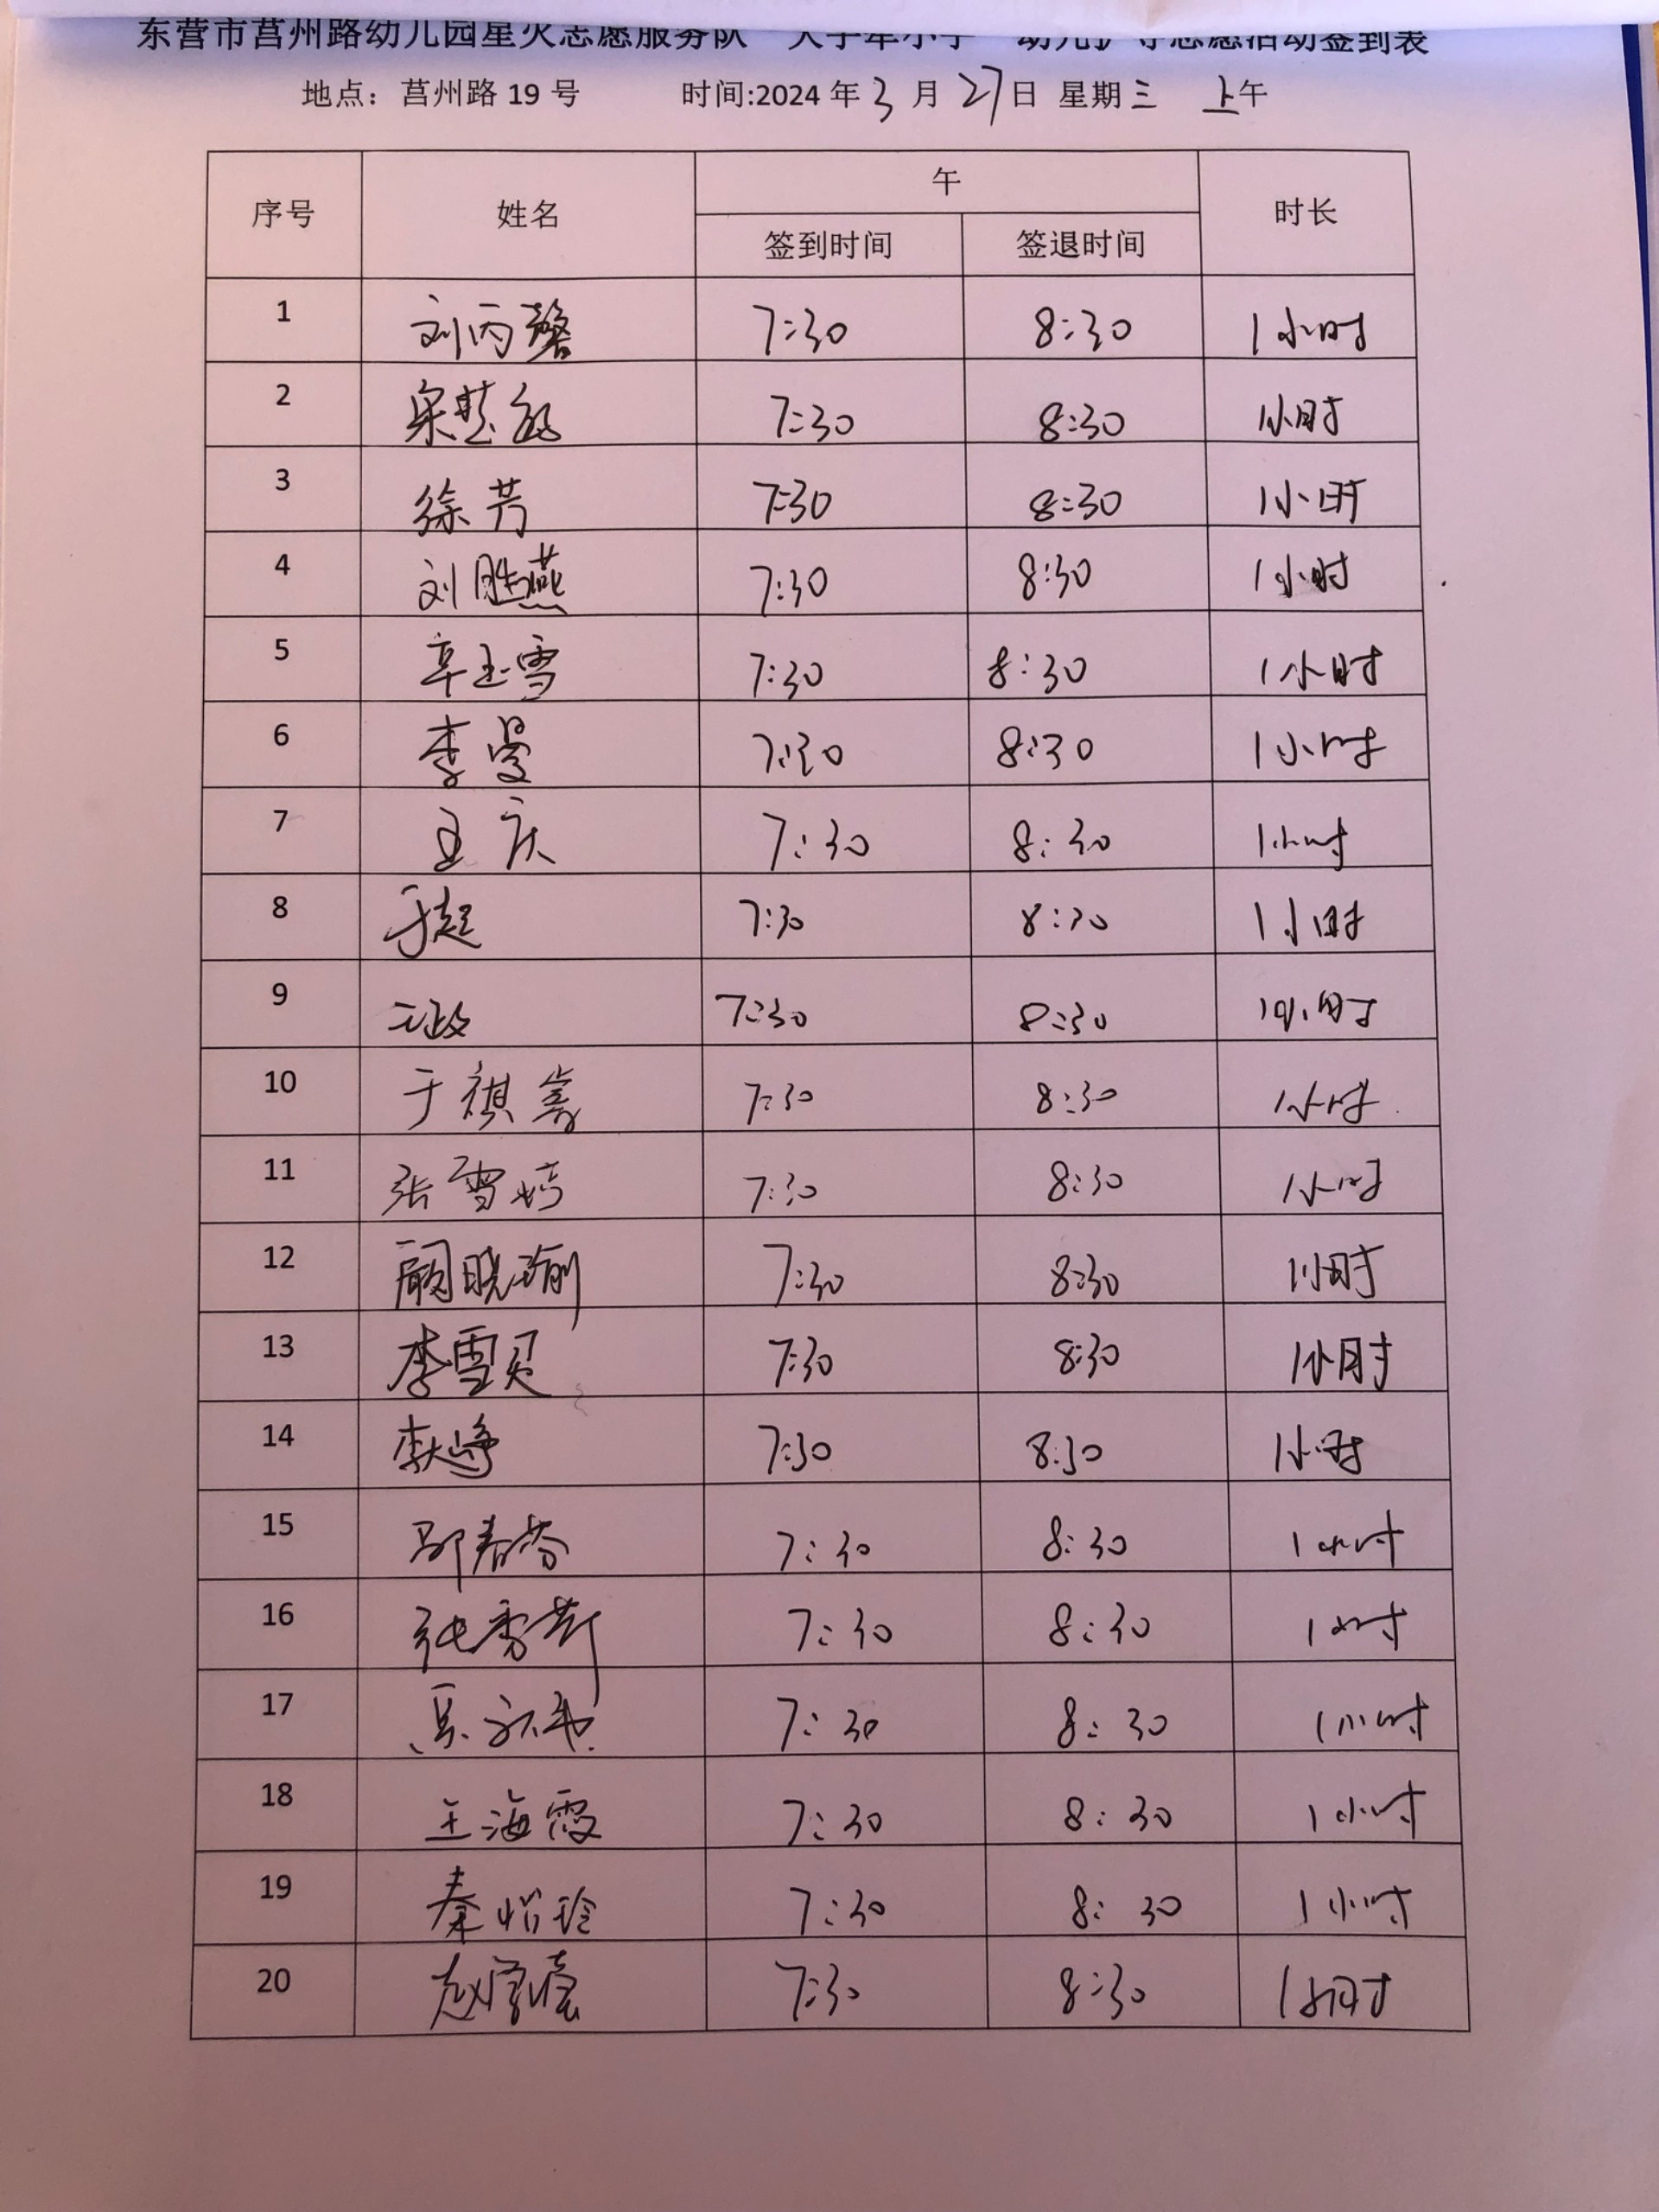 东营市莒州路幼儿园星火志愿服务队“大手牵小手”幼儿护导志愿活动签到表
地点：莒州路 19 号 时间:2024 年 3 月 27 日 星期 三 上午
序号 姓名 午 时长
签到时间 签退时间
1 刘丙馨 7:30 8:30 1小时
2 7:30 8:30 1小时
3 徐芳 7:30 8:30 1小时
4 刘胜燕 7:30 8:30 1小时
5 辛玉雪 7:30 8:30 1小时
6 李曼 7:30 8:30 1小时
7 王庆 7:30 8:30 1小时
8 于超 7:30 8:30 1小时
9 7:30 8:30 1小时
10 于祺 7:30 8:30 1小时
11 张雪婷 7:30 8:30 1小时
12 顾晓瑜 7:30 8:30 1小时
13 李雪 7:30 8:30 1小时
14 7:30 8:30 1小时
15 春芬 7:30 8:30 1小时
16 张秀 7:30 8:30 1小时
17 7:30 8:30 1小时
18 王海霞 7:30 8:30 1小时
19 秦 玲 7:30 8:30 1小时
20 赵 7:30 8:30 1小时